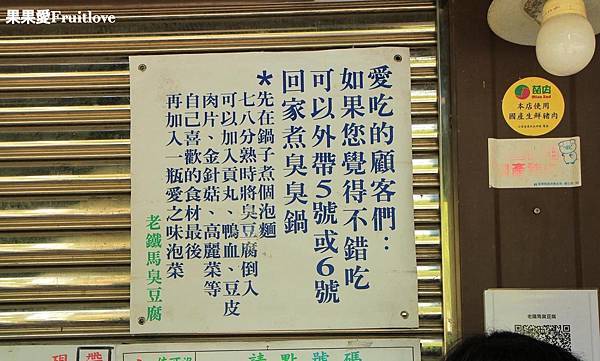 果果愛Fruitlove
愛吃的顧客們：
如果您覺得不錯吃
可以外帶5號或6號
回家煮臭臭鍋
*先在鍋子煮個泡麵
七八分熟時將臭豆腐倒入
可以加入貢丸、鴨血、豆皮
肉片、金針菇、高麗菜等
自己喜歡的食材最後
再加入一瓶愛之味泡菜
老鐵馬臭豆腐
本店使用
國產生鮮豬肉
老鐵馬臭豆腐
請點號碼